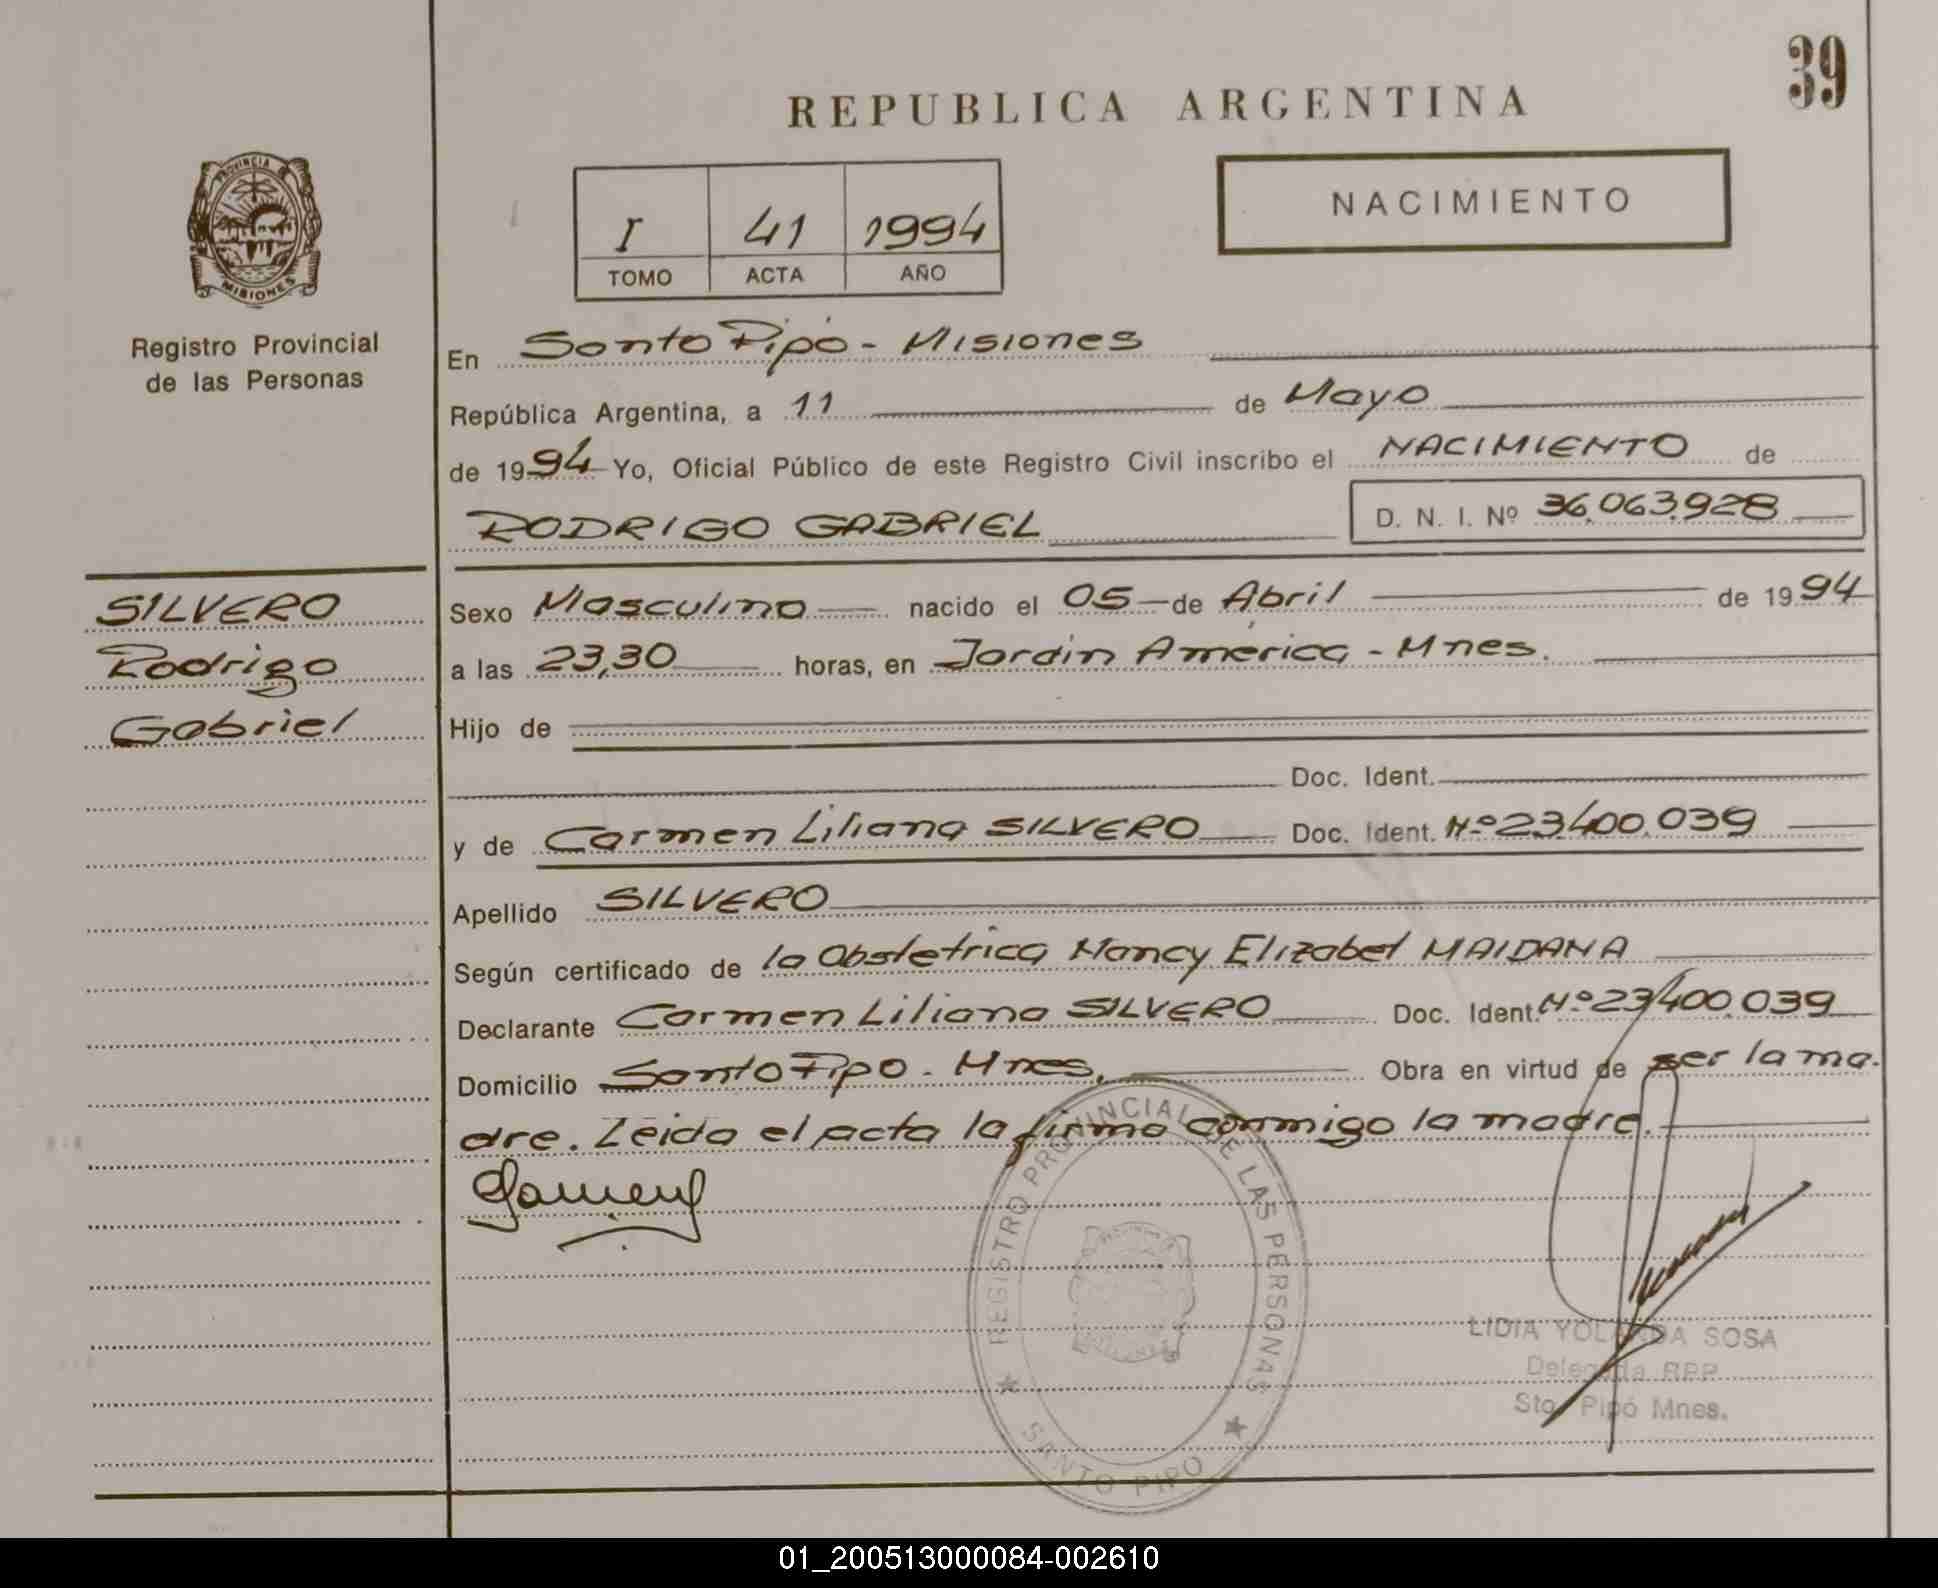 39
REPUBLICA ARGENTINA
NACIMIENTO
I 41 1994
TOMO ACTA AÑO
PROVINCIA
MISIONES
Registro Provincial
de las Personas
En Santo Pipó - Misiones
República Argentina, a 11 de Mayo
de 1994 Yo, Oficial Público de este Registro Civil inscribo el NACIMIENTO de
RODRIGO GABRIEL D. N. I. Nº 36.063.928
SILVERO
Rodrigo
Gabriel
Sexo Masculino nacido el 05 de Abril de 1994
a las 23,30 horas, en Jardín América - Mnes.
Hijo de
Doc. Ident.
y de Carmen Liliana SILVERO Doc. Ident. Nº 23.400.039
Apellido SILVERO
Según certificado de la Obstetrica Nancy Elizabet MAIDANA
Declarante Carmen Liliana SILVERO Doc. Ident. Nº 23.400.039
Domicilio Santo Pipo - Mnes. Obra en virtud de ser la ma-
dre. Leida el acta la firma conmigo la madre.
REGISTRO PROVINCIAL DE LAS PERSONAS
SANTO PIPO
LIDIA YOLANDA SOSA
Delegada RPP
Sto. Pipó Mnes.
01_200513000084-002610